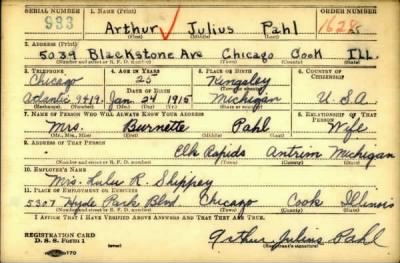 SERIAL NUMBER 1. NAME (Print) ORDER NUMBER
933 Arthur Julius Pahl 1628
(First) (Middle) (Last)
2. ADDRESS (Print)
5039 Blackstone Ave Chicago Cook ILL.
(Number and street or R. F. D. number) (Town) (County) (State)
3. TELEPHONE 4. AGE IN YEARS 5. PLACE OF BIRTH 6. COUNTRY OF CITIZENSHIP
Chicago 25 Kingsley
DATE OF BIRTH
Atlantic 9419 Jan. 24 1915 Michigan U.S.A
(Exchange) (Number) (Mo.) (Day) (Yr.) (State or country)
7. NAME OF PERSON WHO WILL ALWAYS KNOW YOUR ADDRESS 8. RELATIONSHIP OF THAT PERSON
Mrs. Burnette Pahl Wife
(Mr., Mrs., Miss) (First) (Middle) (Last)
9. ADDRESS OF THAT PERSON
Elk Rapids Antrim Michigan
(Number and street or R. F. D. number) (Town) (County) (State)
10. EMPLOYER'S NAME
Mrs. Lulu R. Shippey
11. PLACE OF EMPLOYMENT OR BUSINESS
5307 Hyde Park Blvd. Chicago Cook Illinois
(Number and street or R. F. D. number) (Town) (County) (State)
I AFFIRM THAT I HAVE VERIFIED ABOVE ANSWERS AND THAT THEY ARE TRUE.
REGISTRATION CARD
D. S. S. Form 1 Arthur Julius Pahl
(Registrant's signature)